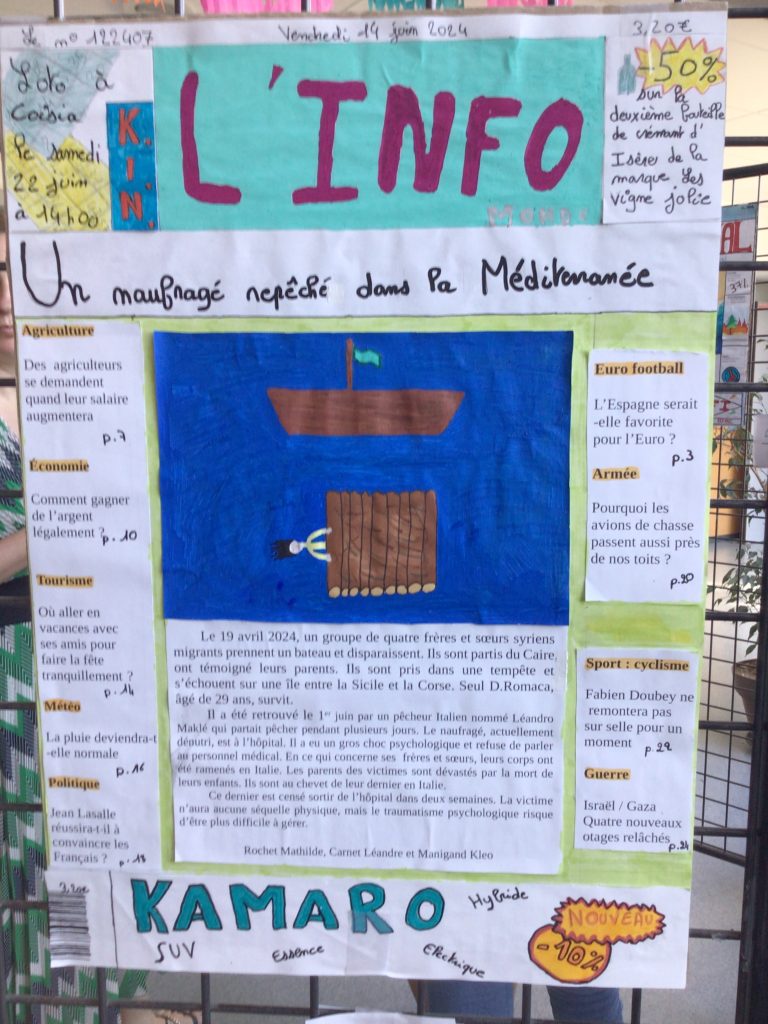 Le n° 122407
Vendredi 14 juin 2024
3,20€
Loto à
Coisia
le samedi
22 juin
à 14h00
K.I.N.
L'INFO
MONDE
-50%
sur la
deuxième bouteille
de crémant d'
Isère de la
marque. Les
vigne jolie
Un naufragé repêché dans la Méditerranée
Agriculture
Des agriculteurs
se demandent
quand leur salaire
augmentera
p.7
Économie
Comment gagner
de l'argent
légalement ?
p.10
Tourisme
Où aller en
vacances avec
ses amis pour
faire la fête
tranquillement ?
p.14
Météo
La pluie deviendra-t
-elle normale
p.16
Politique
Jean Lasalle
réussira-t-il à
convaincre les
Français ?
p.18
Le 19 avril 2024, un groupe de quatre frères et sœurs syriens
migrants prennent un bateau et disparaissent. Ils sont partis du Caire,
ont témoigné leurs parents. Ils sont pris dans une tempête et
s'échouent sur une île entre la Sicile et la Corse. Seul D.Romaca,
âgé de 29 ans, survit.
Il a été retrouvé le 1er juin par un pêcheur Italien nommé Léandro
Maklé qui partait pêcher pendant plusieurs jours. Le naufragé, actuellement
dénutri, est à l'hôpital. Il a eu un gros choc psychologique et refuse de parler
au personnel médical. En ce qui concerne ses frères et sœurs, leurs corps ont
été ramenés en Italie. Les parents des victimes sont dévastés par la mort de
leurs enfants. Ils sont au chevet de leur dernier en Italie.
Ce dernier est censé sortir de l'hôpital dans deux semaines. La victime
n'aura aucune séquelle physique, mais le traumatisme psychologique risque
d'être plus difficile à gérer.
Rochet Mathilde, Carnet Léandre et Manigand Kleo
Euro football
L'Espagne serait
-elle favorite
pour l'Euro ?
p.3
Armée
Pourquoi les
avions de chasse
passent aussi près
de nos toits ?
p.20
Sport : cyclisme
Fabien Doubey ne
remontera pas
sur selle pour un
moment
p.22
Guerre
Israël / Gaza
Quatre nouveaux
otages relâchés
p.24
3,20€
KAMARO
SUV
Essence
Electrique
Hybride
NOUVEAU
-10%
AL
37%